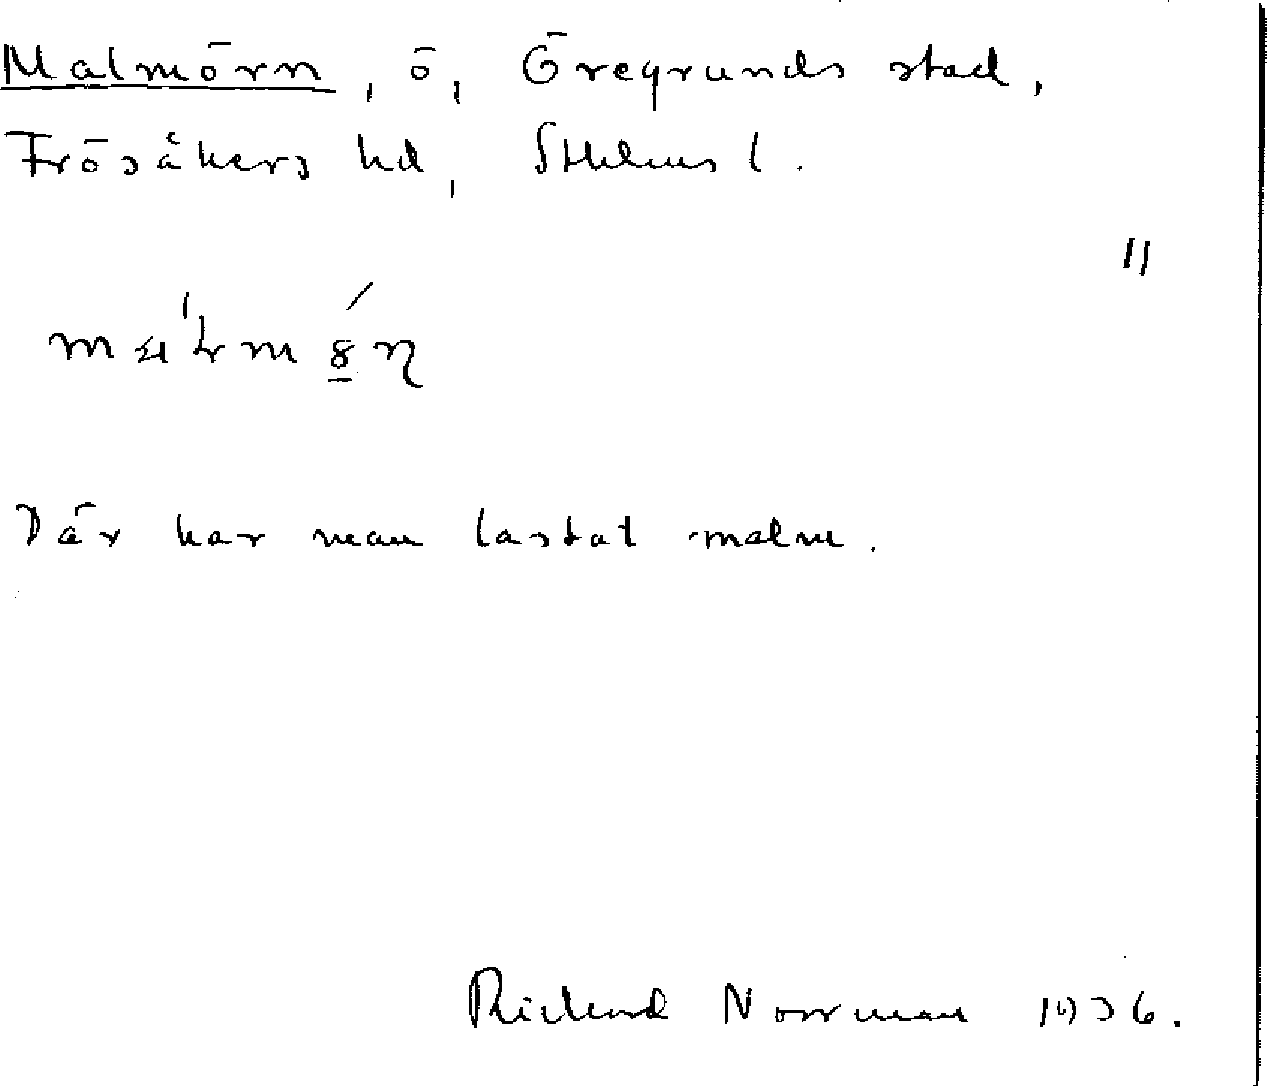 Malmörn, ö, Öregrunds stad,
Frösåkers hd, Sthlms l.
"
Där har man lastat malm.
Rickard Norrman 1936.